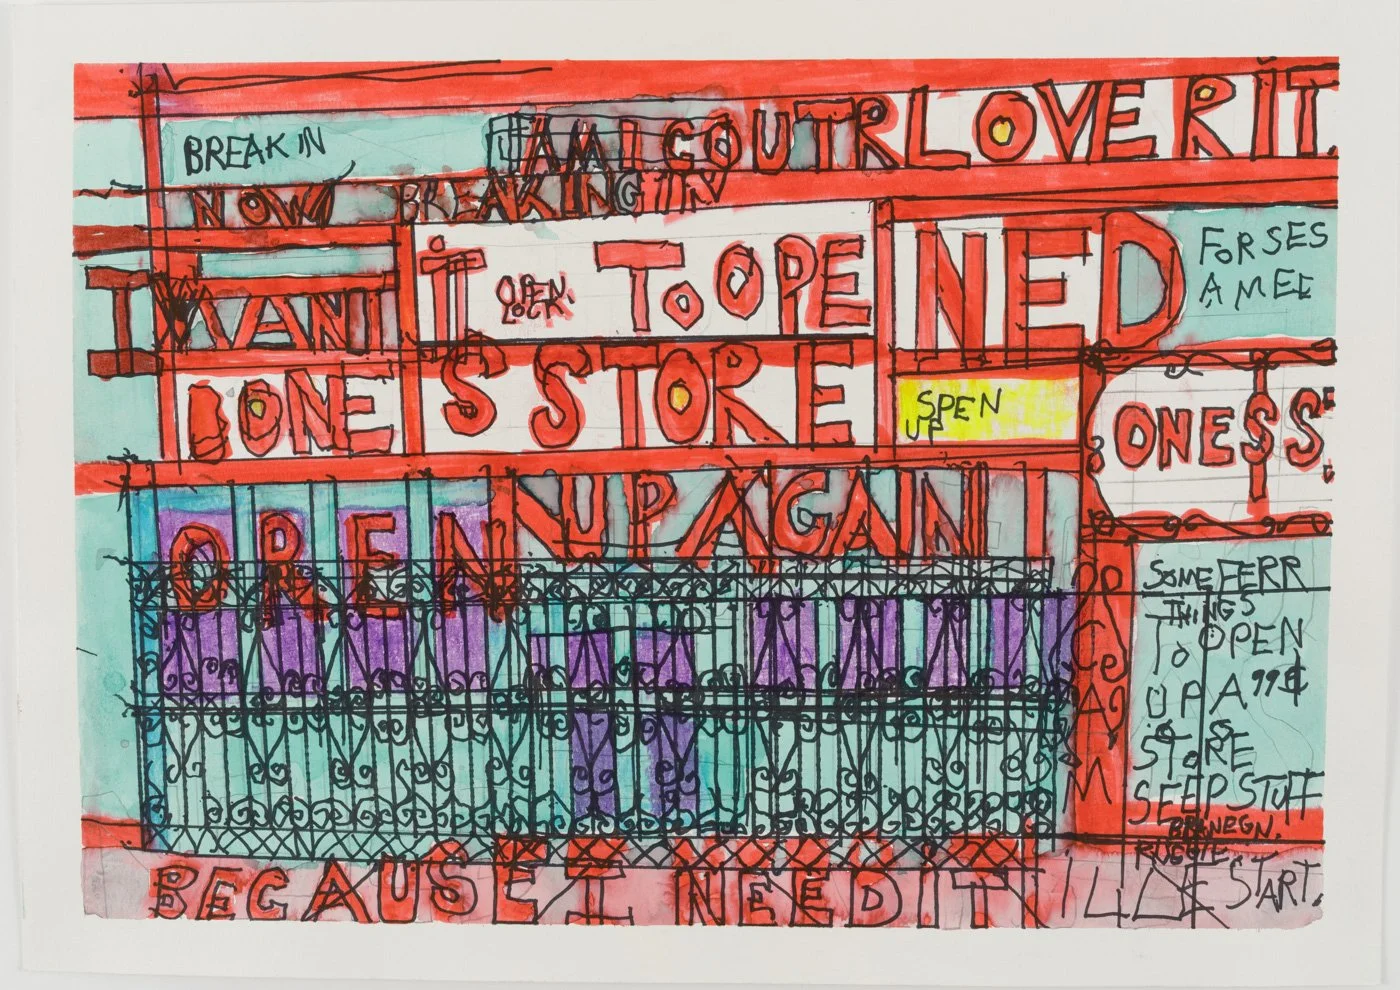 BREAK IN
AM I GOUTR LOVER IT.
NOW BREAKING IN
I WANT
IT
OPEN.
LOCK.
TO OPE
NED
FOR SES
A MEE
DONE
S STORE
SPEN
UP
ONESS
OPEN
UP AGAIN
SOME FERR
THINGS
TO OPEN
UP A 99¢
STORE
SEEP STUFF
BECAUSE I NEED IT
START.